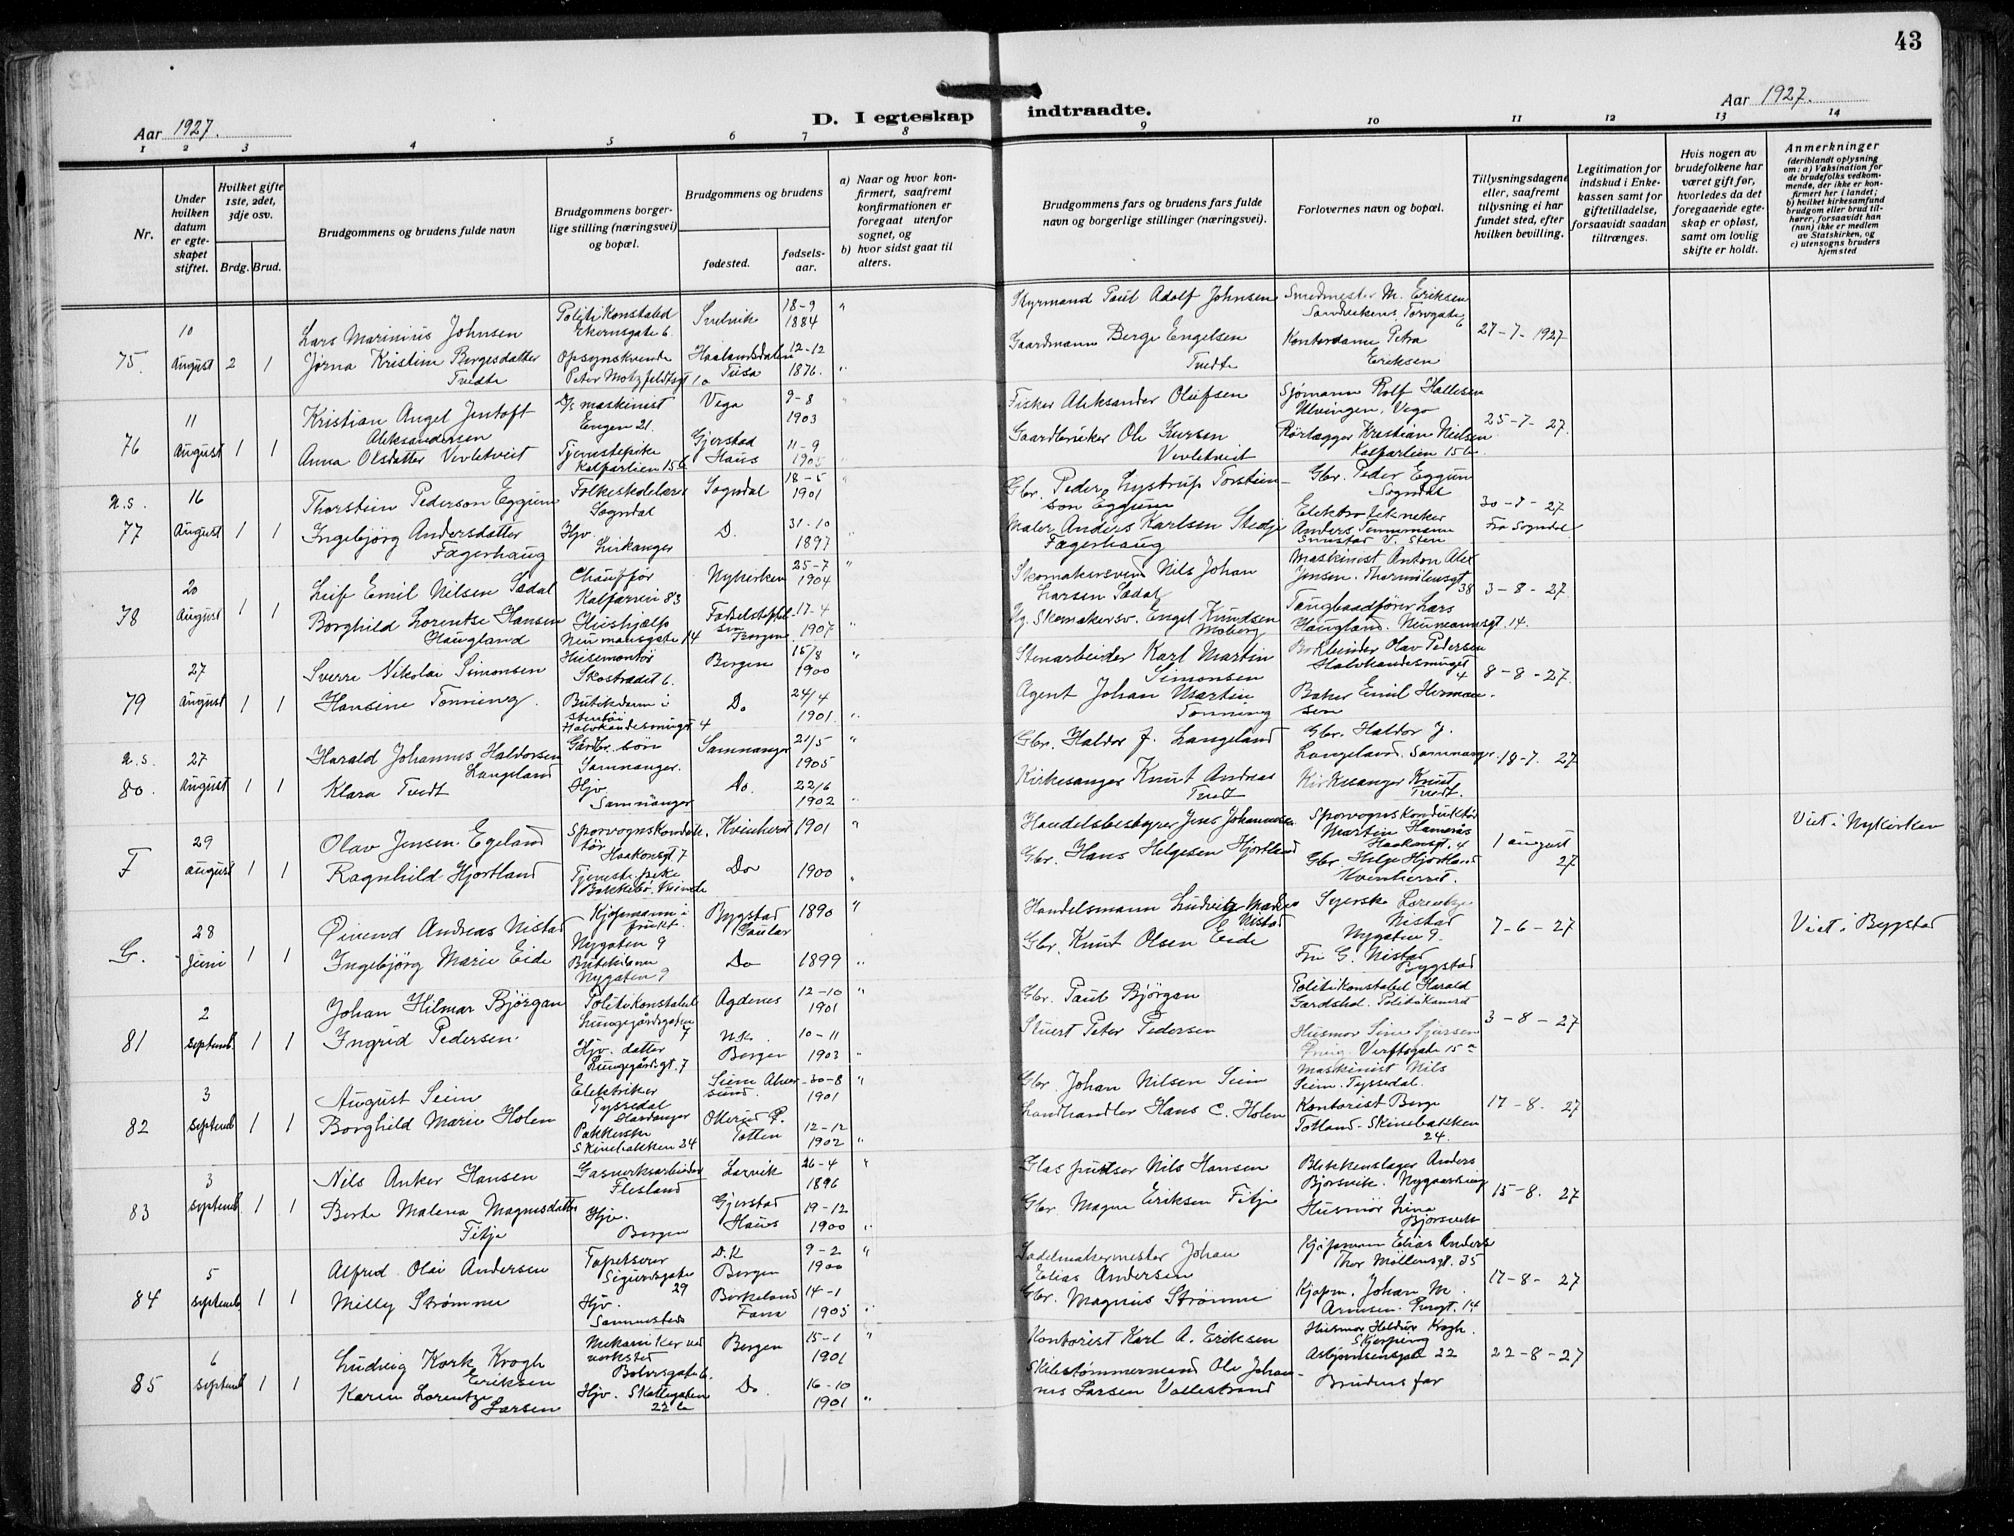 43
Aar 1927.
D. I egteskap indtraadte.
Aar 1927.
1 2 3 4 5 6 7 8 9 10 11 12 13 14
Nr.
Under hvilken datum er egteskapet stiftet.
Hvilket gifte 1ste, 2det, 3dje osv.
Brdg. Brud.
Brudgommens og brudens fulde navn
Brudgommens borgerlige stilling (næringsvei) og bopæl.
Brudgommens og brudens
fødested.
fødselsaar.
a) Naar og hvor konfirmert, saafremt konfirmationen er foregaat utenfor sognet, og
b) hvor sidst gaat til alters.
Brudgommens fars og brudens fars fulde navn og borgerlige stillinger (næringsvei).
Forlovernes navn og bopæl.
Tillysningsdagene eller, saafremt tillysning ei har fundet sted, efter hvilken bevilling.
Legitimation for indskud i Enkekassen samt for giftetilladelse, forsaavidt saadan tiltrænges.
Hvis nogen av brudefolkene har været gift før, hvorledes da det foregaaende egteskap er opløst, samt om lovlig skifte er holdt.
Anmerkninger
(deriblandt oplysning om: a) Vaksination for de brudefolks vedkommende, der ikke er konfirmert her i landet; b) hvilket kirkesamfund brudgom eller brud tilhører, forsaavidt han (hun) ikke er medlem av Statskirken, og c) utensogns bruders hjemsted
75. 10 August 2 1
Lars Marinius Johnsen
Jørna Kristine Bergesdatter Tvedte
Politikonstabel Ekernsgate 6.
Opsynskvinde Peter Motzfeldtsgt 10
Svelvik 18-9 1884
Haalandsdalen 12-12 1876.
Styrmand Paul Adolf Johnsen
Gaardmann Berge Engelsen Tvedte
Smedmester M. Eriksen Sandvikens Torvgate 6
Kontordame Petra Eriksen
27-7-1927
76 11 August 1 1
Kristian Angel Jentoft Aleksandersen
Anna Olsdatter Vevletveit
D/s maskinist Engen 21.
Tjenestepike Kalfarlien 15 b
Vega 9-8 1903
Gjerstad Haus 11-9 1905
Fisker Aleksander Olufsen
Gaardbruker Ole Iversen Vevletveit
Sjømann Rolf Hallesen Ulvingen, Vega
Rørlægger Kristian Nielsen Kalfarlien 15 b.
25-7-27.
n.s. 77 16 August 1 1
Thorstein Pederson Eggum
Ingebjørg Andersdatter Fagerhaug
Folkeskolelærer Sogndal
Hjv. Leikanger
Sogndal 18-5 1901
D. 31-10 1897
Gbr. Peder Lystrup Torsteinson Eggum
Maler Anders Karlsen Stedje Fagerhaug
Gbr. Peder Eggum Sogndal
Elektrotekneker Anders Tennemann
30-7-27
Fra Sogndal
78 20 August 1 1
Leif Emil Nilsen Sædal
Borghild Lorentse Hansen Haugland
Chauffør Kalfarvei 83
Hushjælp Neumansgate 14
Nykirken 25-7 1904
Fødselsstiftelsen Bergen 17-4 1907
Skomakersvend Nils Johan Larsen Sædal
Hg. Skomakersv. Engel Knudsen Moberg
Maskinist Anton Alex Jensen. Thormølensgt 38
Taugbaadfører Lars Haugland. Neumannsgt. 14.
3-8-27.
79 27 August 1 1
Sverre Nikolai Simonsen
Hansine Tonning.
Husemontør Skostrædet 6.
Butikdame i Halvkandesmuget 4
Bergen 15/8 1900
Do 24/4 1901.
Stenarbeider Karl Martin Simonsen
Agent Johan Martin Tonning
Bokbinder Olav Pedersen Halvkandesmuget 4
Baker Emil Hermansen
8-8-27.
n.s. 80. 27 August 1 1
Harald Johannes Haldorsen Langeland
Klara Tvedt
Gårdbr. søn Samnanger.
Hjv. Samnanger
Samnanger 21/5 1905
Do. 22/6 1902
Gbr. Haldor J. Langeland
Kirkesanger Knut Andreas Tvedt
Gbr. Haldor J. Langeland. Samnanger
Kirkesanger Knut Tvedt.
18-7. 27
F 29 august 1 1
Olav Jensen Egeland
Ragnhild Hjortland
Sporvognskonduktør Haakonsgt 7
Tjenestepike
Kvinherred 1901
Do 1900
Handelsbestyrer Jens Johannesen
Gbr. Hans Helgesen Hjortland
Sporvognskonduktør Martin Hamrås Haakonsgt. 4
Gbr. Helge Hjortland Kvinherred.
1 august 27
Viet i Nykirken
G. 28 Juni 1 1
Øivend Andreas Nistad
Ingebjørg Marie Eide
Kjøpmann i frukt. Nygaten 9
Butikdame Nygaten 9
Bygstad Gaular 1890
Do 1899
Handelsmann Ludvig Nistad
Gbr. Knut Olsen Eide
Syerske Lorentze Nistad Nygaten 9.
Fru G. Nistad Bygstad
7-6-27
Viet i Bygstad
81 2 septemb. 1 1
Johan Hilmar Bjørgan
Ingrid Pedersen.
Politikonstabel Lungegårdsgaten 7
Hjv. datter Lungegårdsgt. 7
Agdenes 12-10 1901
N.k. Bergen 10-11 1903
Gbr. Paul Bjørgan
Stuert Peter Pedersen
Politikonstabel Harald Gardshol. Politikamret
Husmor Sine Sjursen Verftsgate 15 a
3-8-27
82 3 septemb 1 1
August Seim
Borghild Marie Holen
Elektriker Tyssedal Hardanger
Pakkerske Skivebakken 24
Seim Alversund. 30-8 1901
Ø. Toten 12-12 1902
Gbr. Johan Nilsen Seim
Landhandler Hans C. Holen
Maskinist Nils Seim. Tyssedal.
Kontorist Berge Totland. Skivebakken 24.
17-8. 27
83 3 septemb 1 1
Nils Anker Hansen
Berte Malena Magnesdatter Fitje
Gasverksarbeider Flesland
Hjv. Bergen
Larvik 26-4 1896
Gjerstad Haus 19-12 1900
Glaspudser Nils Hansen
Gbr. Magne Eriksen Fitje
Blikkenslager Anders Bjørsvik. Nygaardsvei
Husmor Lina Bjørsvik
15-8. 27
84 5 septemb 1 1
Alfred Olai Andersen
Milly Strømme
Tapetserer Sigurdsgate 29
Hjv. Sammesteds
D.K Bergen 9-2 1900
Birkeland Fana 14-1 1905
Sadelmakermester Johan Elias Andersen
Gbr. Magnus Strømme
Kjøpmann Elias Anders. Thor Møllensgt. 35
Kjøpm. Johan M. Arnesen.
17-8-27
85 6 septemb 1 1
Ludvig Kork Krogh Eriksen
Karin Lorentze Larsen
Mekaniker ved verksted
Hjv. Skottegaten 22 b
Bergen 15-1 1901
Do. 16-10 1901
Kontorist Karl A. Eriksen
Skibstømmermand Ole Johannes Larsen Vallestrand
Husmor Heldur Krogh. Asbjørnsensgate 22
Brudens far
22-8-27